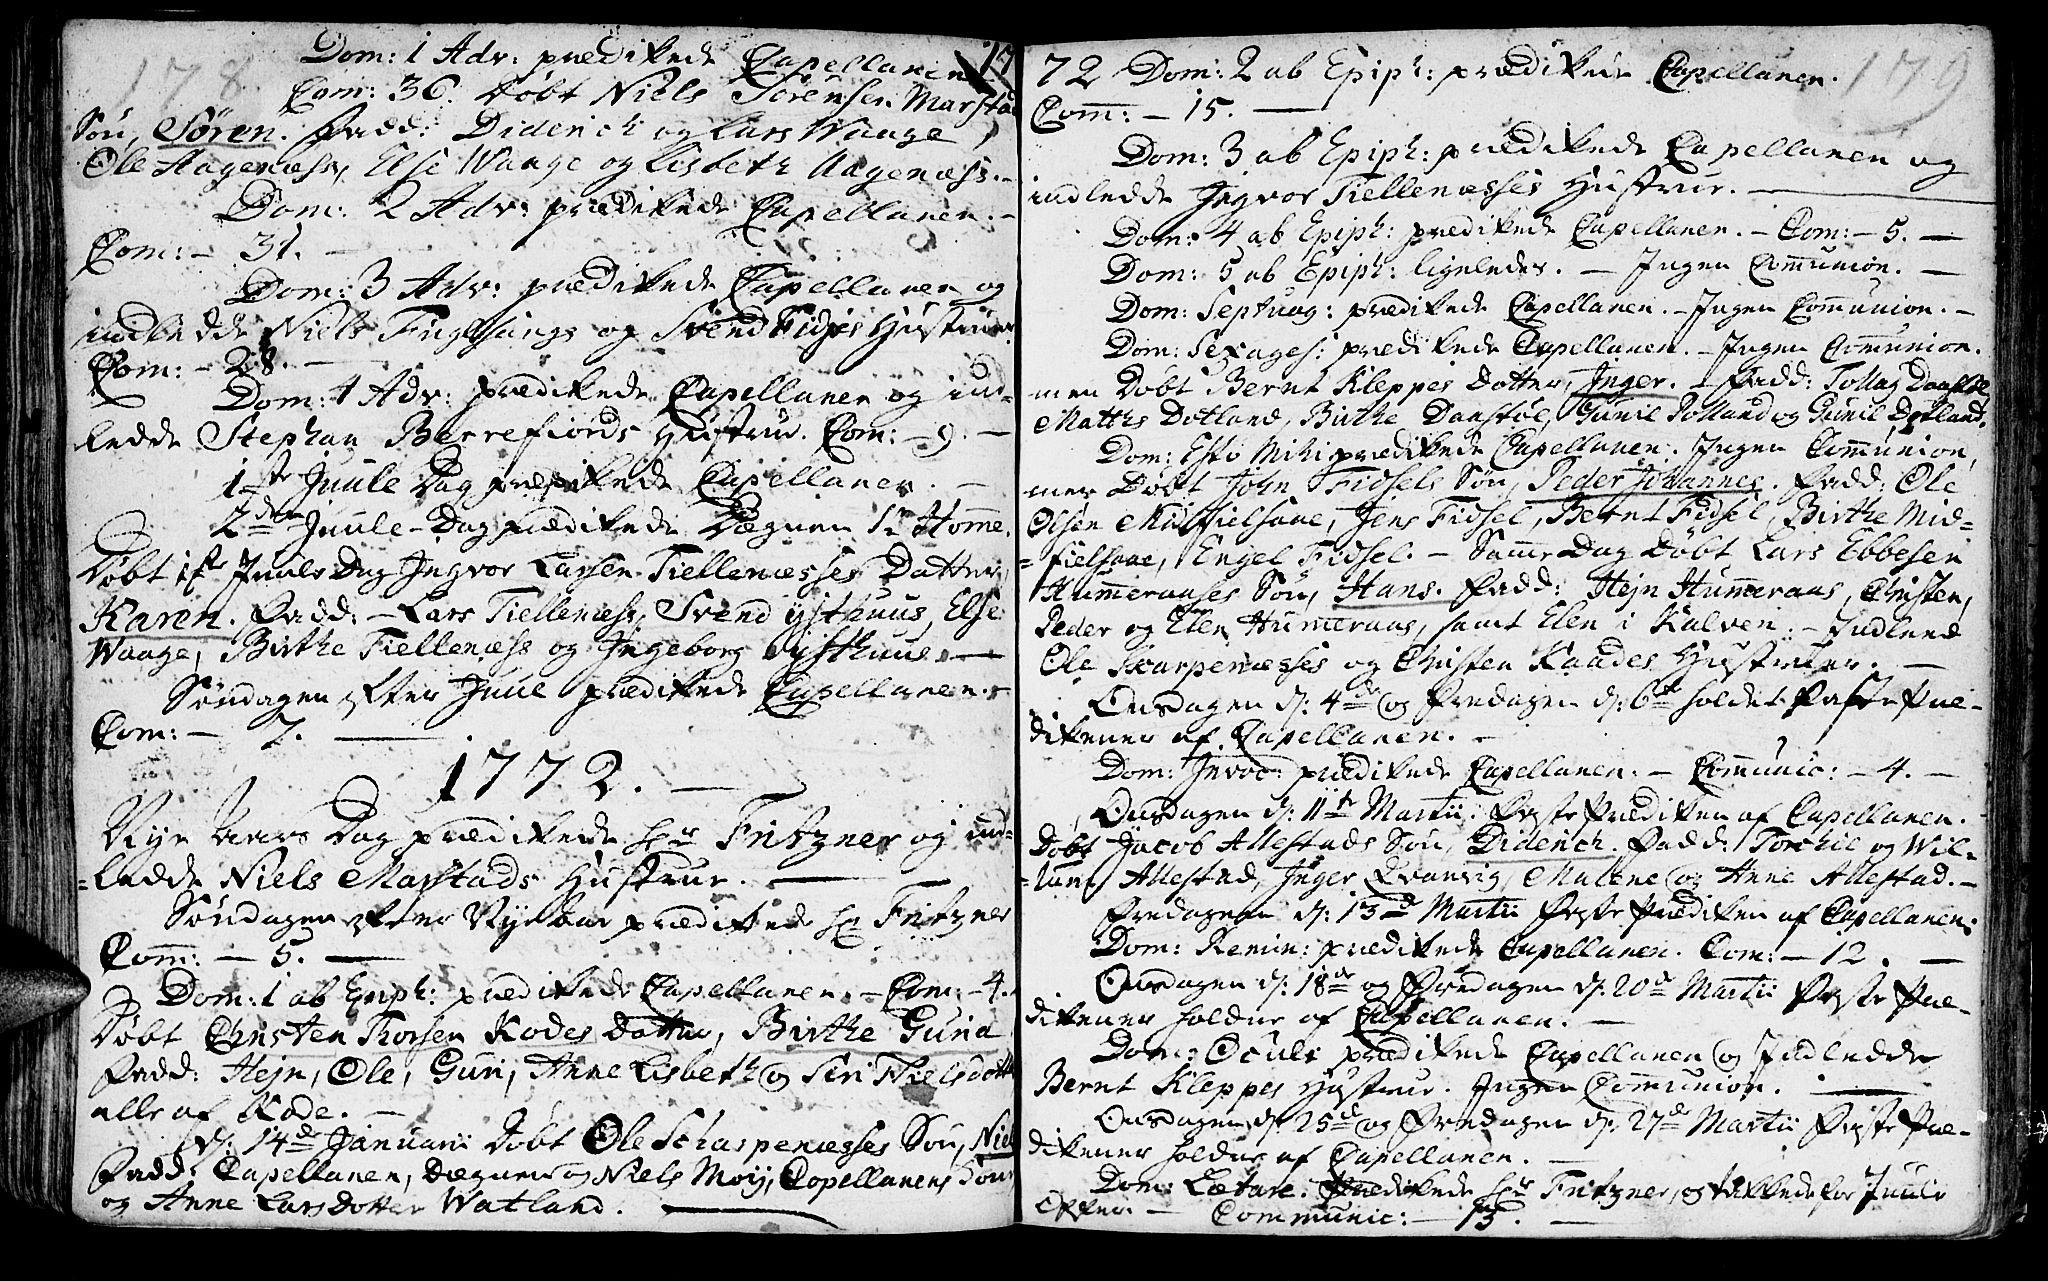 178.
Dom: 1 Adv: prædikede Capellanen 17
Com: 36. Døbt Niels Sørensen Marstad
Søn, Søren. Fadd: Diderich og Lars Waage,
Ole Hagenæss, Else Waage og Lisbeth Aagenæss. -
Dom: 2 Adv: prædikede Capellanen. -
Com: - 31. -
Dom: 3 Adv: prædikede Capellanen og
indledde Niels Fuglsangs og Svend Fidjes Hustruer.
Com: - 28. -
Dom: 4 Adv: prædikede Capellanen og ind-
ledde Stephan Berrefiords Hustrue. Com: - 9. -
1ste Juule Dag prædikede Capellanen. -
2den Juule-Dag prædikede Degnen i Homme.
Døbt 1ste Juule Dag Ingvor Larsen Tiellenæsses Datter,
Karen. Fadd: - Lars Tiellenæss, Svend ysthuus, Else
Waage, Birthe Tiellenæss og Ingeborg ysthuus. -
Søndagen efter Juul prædikede Capellanen. -
Com: - 7. -
1772. -
Nye Aars Dag prædikede Hr Fritzner og ind-
=ledde Niels Marstads Hustrue. -
Søndagen efter Nye Aar prædikede Hr Fritzner
Com: - 5. -
Dom: 1 ab Epiph: prædikede Capellanen. - Com: - 4.
Døbt Christen Thorsen Kodes Datter, Birthe Guria
Fadd: Hejn, Ole, Guri, Anne Lisbeth og Siri Nielsdotte
alle af Kode. -
d: 14de Januarii Døbt Ole Scharpenæsses Søn, Niel
Fadd: Capellanen, Degnen og Niels Moy, Capellanens Kone
og Anne Larsdotter Watland. -
179
72 Dom: 2 ab Epiph: prædikede Capellanen.
Com: - 15. -
Dom: 3 ab Epiph: prædikede Capellanen og
indledde Ingvor Tiellenæsses Hustrue. -
Dom: 4 ab Epiph: prædikede Capellanen. - Com: - 5. -
Dom: 5 ab Epiph: ligeledes. - Ingen Communion. -
Dom: Septuag: prædikede Capellanen. - Ingen Communion. -
Dom: Sexages: prædikede Capellanen. - Ingen Communion.
men Døbt Bernt Kleppes Dotter, Inger. - Fadd: Tollag
Matths Dotland, Birthe Danstøl, Gunil Rolland og Gunil Dotland.
Dom: Esto Mihi prædikede Capellanen. Ingen Communion,
men Døbt John Fidsels Søn, Peder Johannes. Fadd: Ole
Olsen Midfielsaae, Jens Fidsel, Bernt Fidsel, Birthe Mid-
=fielsaae, Engel Fidsel. - Samme Dag Døbt Lars Ebbesen
Hummeraases Søn, Hans. Fadd: Hejn Hummeraas, Christen,
Peder og Elen Hummeraas, samt Elen i Kalven. - Indledde
Ole Skarpenæsses og Christen Kaades Hustruer. -
Onsdagen d: 4de og Fredagen d: 6te holdet Faste Præ-
dikener af Capellanen. -
Dom: Invoc: prædikede Capellanen. - Communic: - 4. -
Onsdagen d: 11te Martii Faste Prædiken af Capellanen.
Døbt Jacob Allestads Søn, Diderich. Fadd: Torchil og Wil-
=lum Allestad, Inger Qvanvig, Malene og Anne Allestad. -
Fredagen d: 13de Martii Faste Prædiken af Capellanen.
Dom: Remin: prædikede Capellanen. Com: - 12. -
Onsdagen d: 18de og Fredagen d: 20de Martii Faste Præ-
dikener holdne af Capellanen. -
Dom: Oculi prædikede Capellanen og Indledde
Bernt Kleppes Hustrue. Ingen Communion. -
Onsdagen d: 25de og Fredagen d: 27de Martii Faste Præ-
dikener holdne af Capellanen. -
Dom: Lætare. Prædikede Hr Fritzner, og takkede for Juule
Offer. - Communic: - 13. -